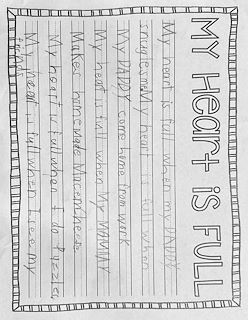 MY HEART IS FULL
My heart is full when my DADDY
snuglesme My heart is full when
My DADDY come home from work
My heart is full when My MOMMY
Makes homemade MacenCheese
My heart is full when I do Puzzles
My heart is full when I see my